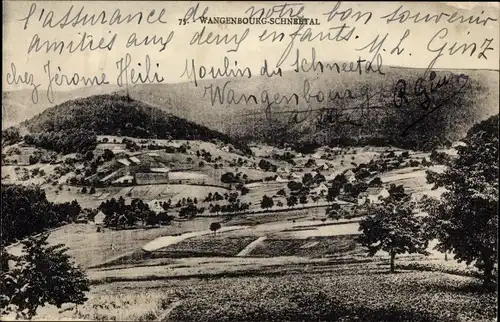 l'assurance de notre bon souvenir
75. WANGENBOURG-SCHNEETAL
amitiés aux demy enfants. M. L. Ginz
chez Jérome Heili Moulin du Schneetal
Wangenbourg